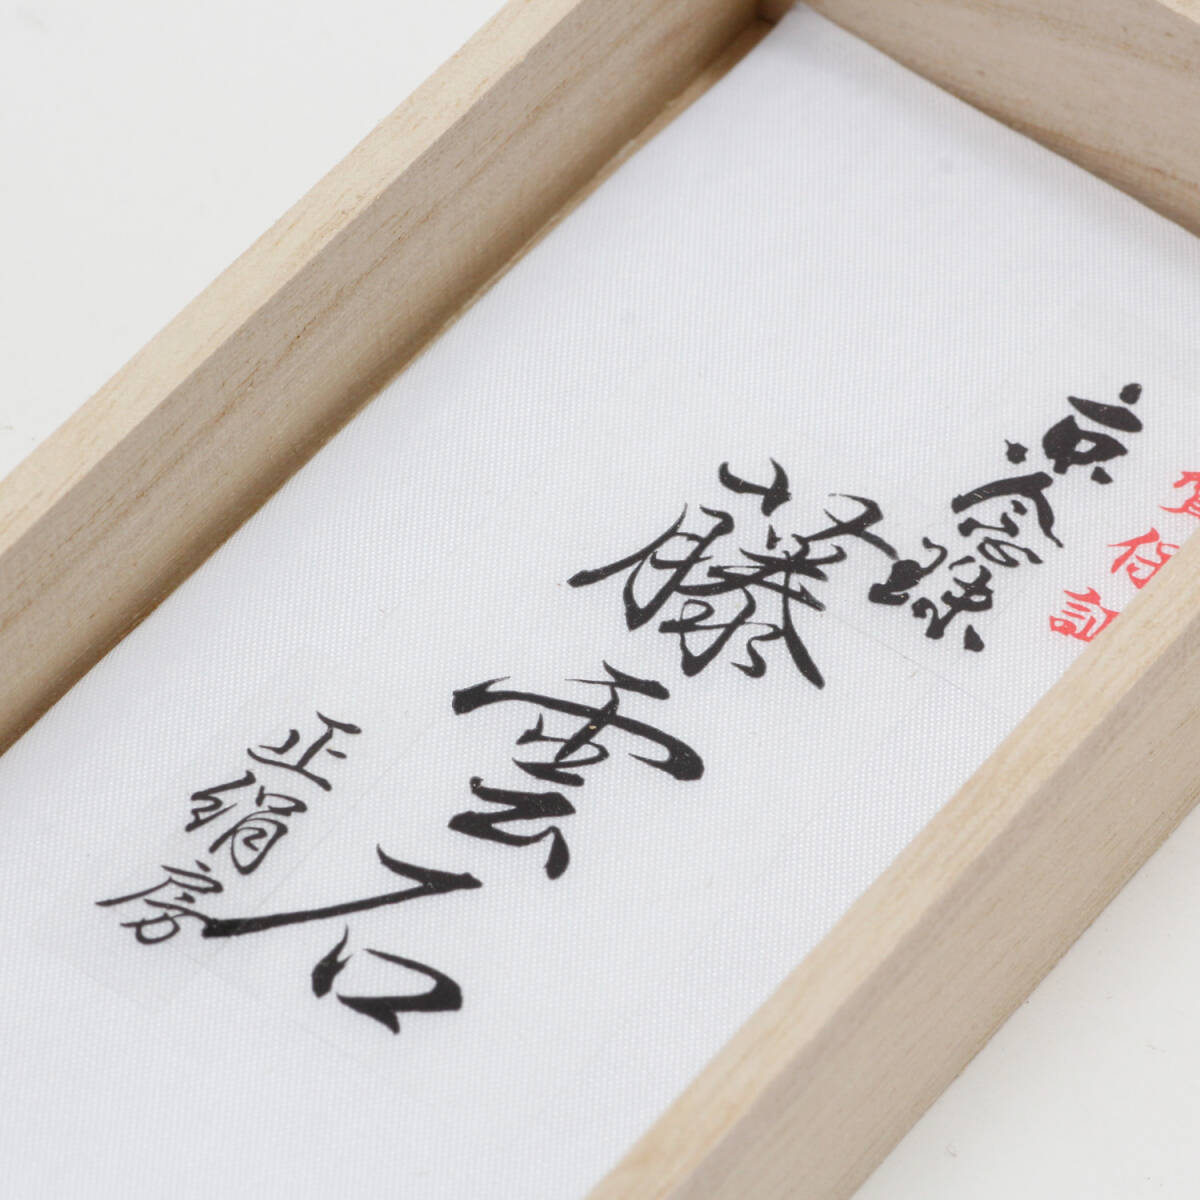 品質保証
京念珠
藤雲石
正絹房